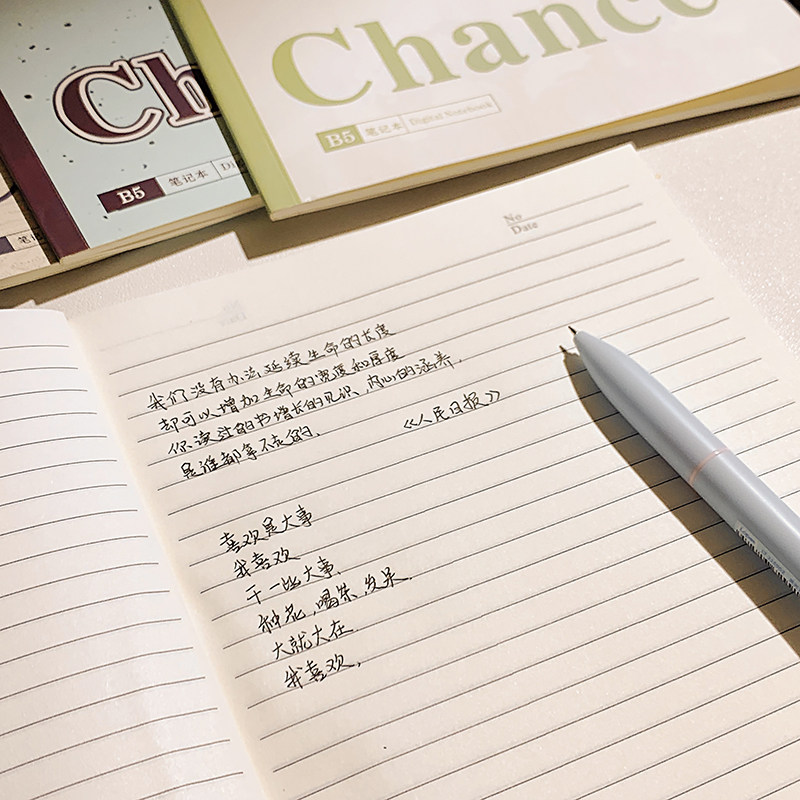 Ch
B5 笔记本 Di
笔
Chance
B5 笔记本 Digital Notebook
No
Date
我们没有办法延续生命的长度
却可以增加生命的宽度和厚度
你读过的书增长的见识,内心的涵养.
是谁都拿不走的.
《人民日报》
喜欢是大事
我喜欢
干一些大事.
种花,喝茶,发呆.
大就大在
我喜欢.